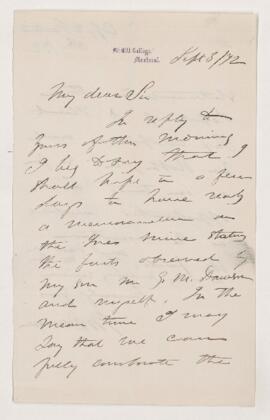 McGill College,
Montreal.
Sept 8/92
My dear Sir
In reply to
yours of this morning
I beg to say that I
shall hope in a few
days to have ready
a memorandum on
the mine stating
the facts observed by
my son Mr G. M. Dawson
and myself. In the
mean time I may
say that we can
fully corroborate the